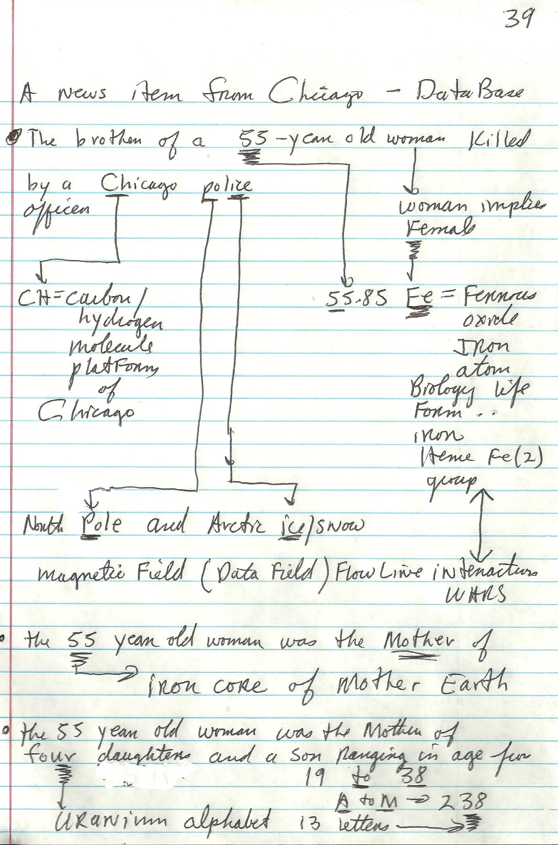 39
A news item from Chicago - DataBase
The brother of a 55-year old woman killed
by a Chicago police
officer
woman implies
Female
CH = carbon/
hydrogen
molecule
platForms
of
Chicago
55.85 Fe = Ferrous
oxide
Iron
atom
Biology life
Form ..
iron
Heme Fe(2)
group
North Pole and Arctic ice/snow
magnetic Field (Data Field) Flow Line interactions
WARS
the 55 year old woman was the Mother of
iron core of Mother Earth
the 55 year old woman was the Mother of
four daughters and a son ranging in age from
19 to 38
A to M → 238
Uranium alphabet 13 letters